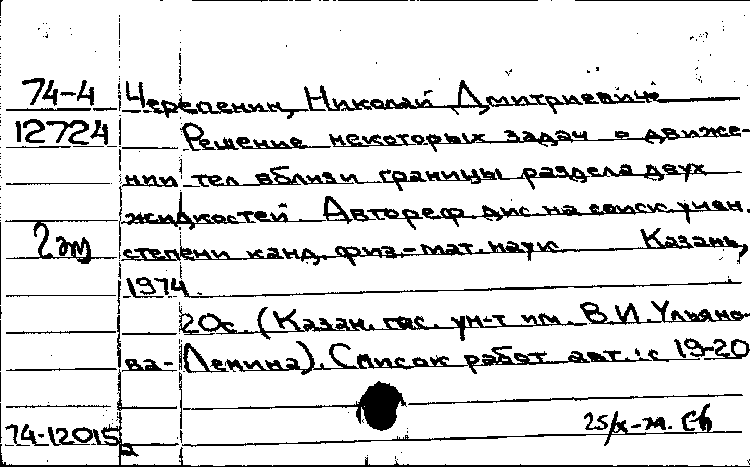 74-4 Черепенин, Николай Дмитриевич
12724 Решение некоторых задач о движе-
нии тел вблизи границы раздела двух
жидкостей. Автореф. дис. на соиск. учен.
2 эт степени канд. физ.-мат. наук. Казань,
1974.
20с. (Казан. гос. ун-т им. В.И. Ульяно-
ва-Ленина). Список работ авт.: с 19-20
25/X-74.
74-12015